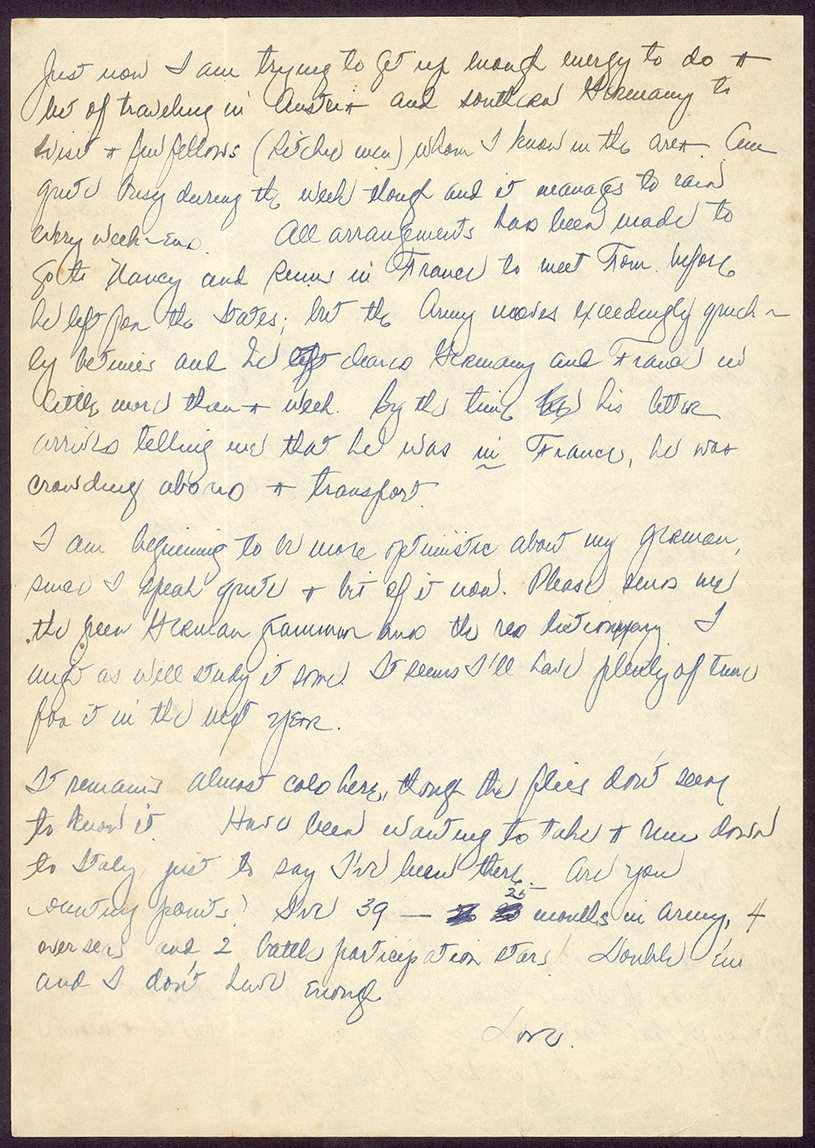 Just now I am trying to get up enough energy to do a
bit of traveling in Austria and southern Germany to
visit a few fellows (Ritchie men) whom I know in the area. Am
quite busy during the week though and it manages to rain
every week-end. All arrangements has been made to
go to Nancy and Reims in France to meet Tom before
he left for the States; but the Army moves exceedingly quick-
ly betimes and he left cleared Germany and France in
little more than a week. By the time his letter
arrives telling me that he was in France, he was
crowding aboard a transport.
I am beginning to be more optimistic about my German,
since I speak quite a bit of it now. Please send me
the green German grammar and the red dictionary. I
might as well study it some. It seems I'll have plenty of time
for it in the next year.
It remains almost cold here, though the flies don't seem
to know it. Have been wanting to take a run down
to Italy, just to say I've been there. Are you
counting points? I've 39 — 25 months in army, 4
overseas and 2 battle participation stars! Double 'em
and I don't have enough.
Love.